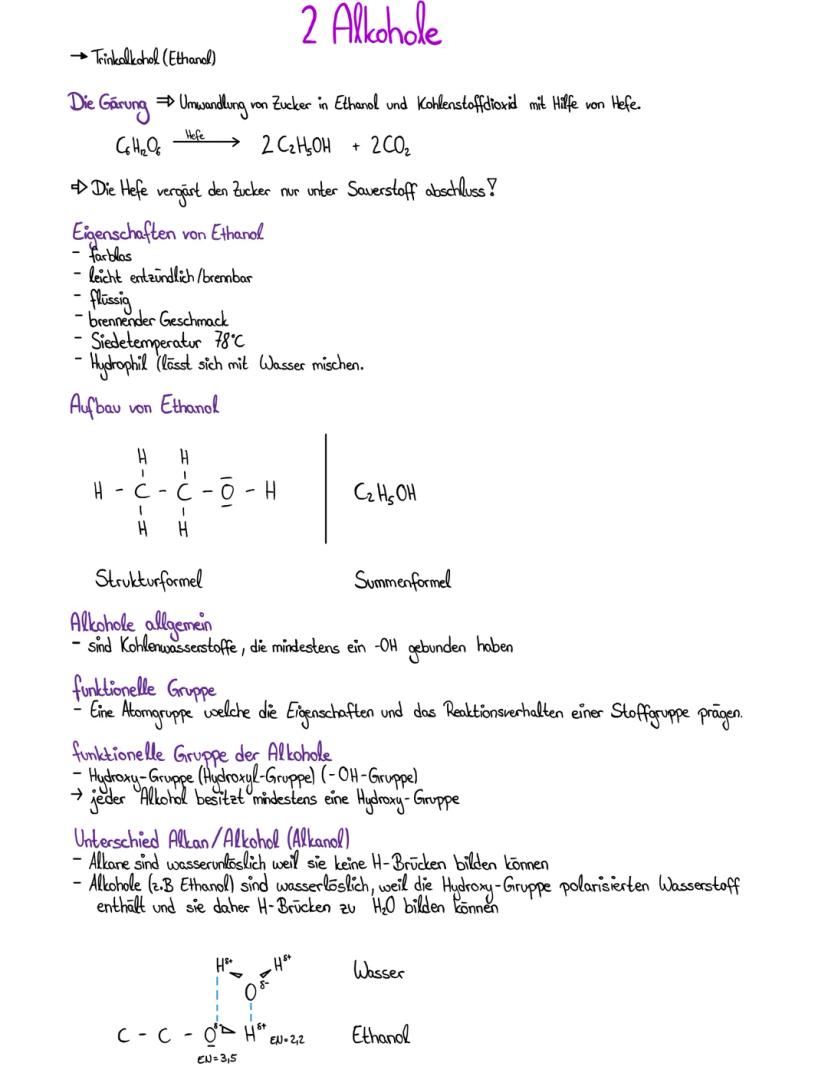 2 Alkohole
→ Trinkalkohol (Ethanol)
Die Gärung ⇒ Umwandlung von Zucker in Ethanol und Kohlenstoffdioxid mit Hilfe von Hefe.
C₆H₁₂O₆ —Hefe→ 2 C₂H₅OH + 2 CO₂
⇒ Die Hefe vergärt den Zucker nur unter Sauerstoff abschluss!
Eigenschaften von Ethanol
- farblos
- leicht entzündlich/brennbar
- flüssig
- brennender Geschmack
- Siedetemperatur 78°C
- Hydrophil (lässt sich mit Wasser mischen.
Aufbau von Ethanol
H H
H - C - C - O - H C₂H₅OH
H H
Strukturformel Summenformel
Alkohole allgemein
- sind Kohlenwasserstoffe, die mindestens ein -OH gebunden haben
funktionelle Gruppe
- Eine Atomgruppe welche die Eigenschaften und das Reaktionsverhalten einer Stoffgruppe prägen.
funktionelle Gruppe der Alkohole
- Hydroxy-Gruppe (Hydroxyl-Gruppe) (-OH-Gruppe)
→ jeder Alkohol besitzt mindestens eine Hydroxy-Gruppe
Unterschied Alkan/Alkohol (Alkanol)
- Alkane sind wasserunlöslich weil sie keine H-Brücken bilden können
- Alkohole (z.B Ethanol) sind wasserlöslich, weil die Hydroxy-Gruppe polarisierten Wasserstoff
enthält und sie daher H-Brücken zu H₂O bilden können
H δ+ H δ+ Wasser
O δ-
C - C - O H δ+ EN=2,2 Ethanol
EN=3,5